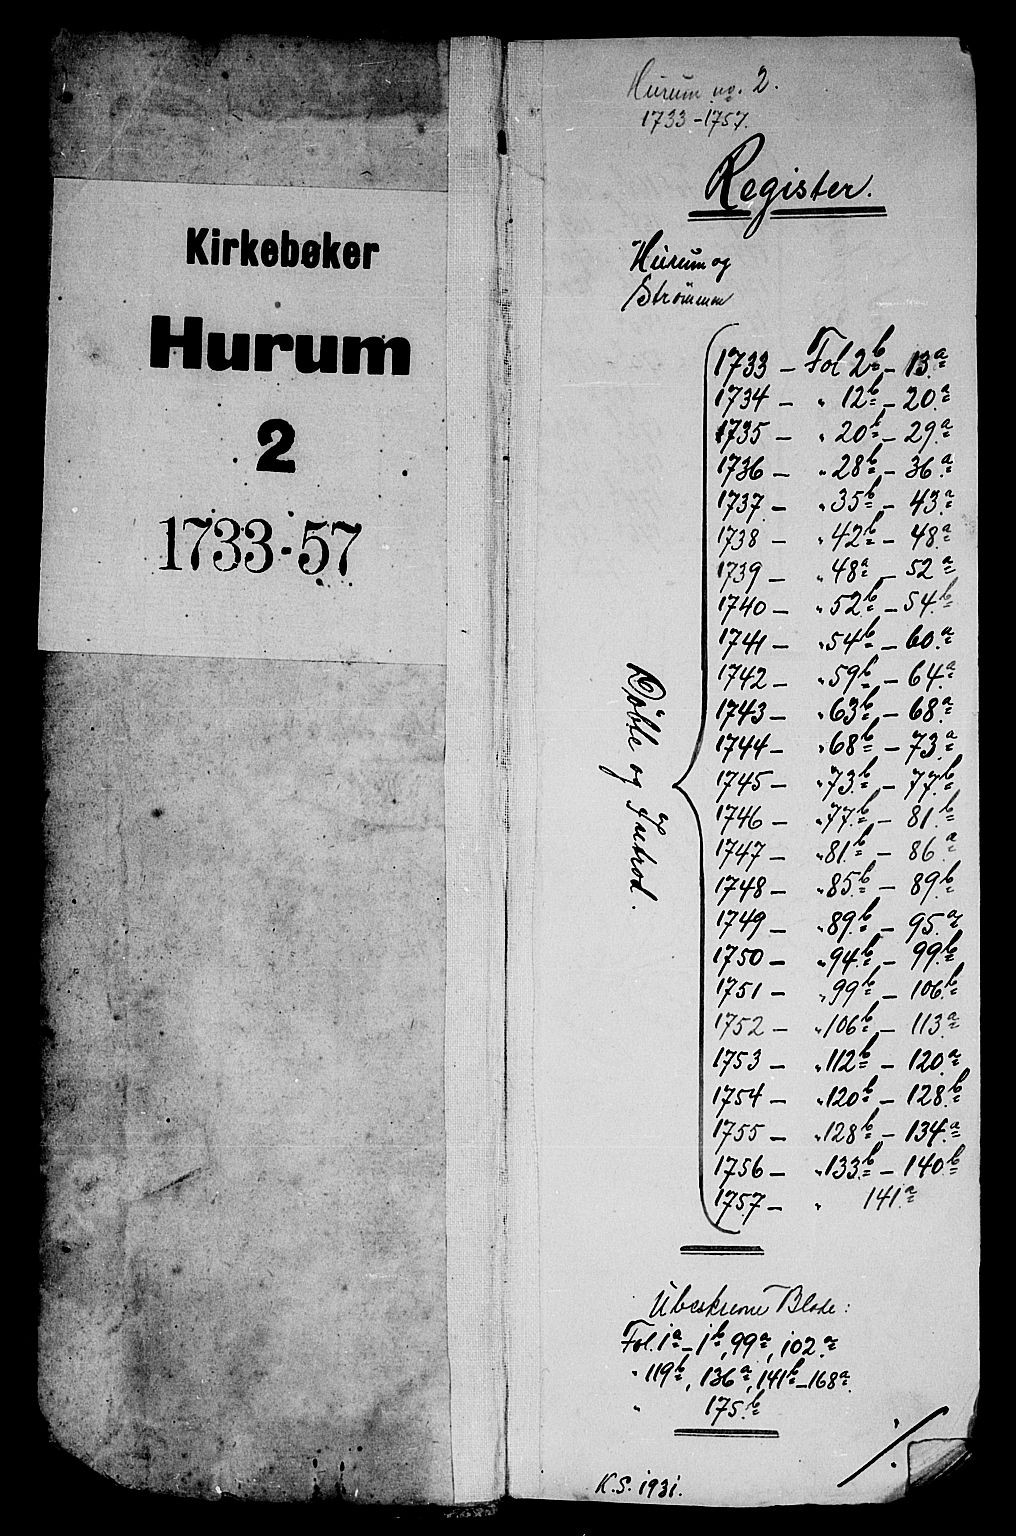 Kirkebøker
Hurum
2
1733-57
Hurum no. 2.
1733-1757.
Register.
Hurum og
Strömmen
Döbte og Introd.
1733 - Fol 2b - 13.a
1734 - " 12b - 20.a
1735 - " 20b - 29.a
1736 - " 28b - 36a
1737 - " 35b - 43.a
1738 - " 42b - 48.a
1739 - " 48a - 52a
1740 - " 52b - 54b
1741 - " 54b - 60.a
1742 - " 59b - 64.a
1743 - " 63b - 68a
1744 - " 68b - 73.a
1745 - " 73b - 77.b
1746 - " 77b - 81.b
1747 - " 81.b - 86a
1748 - " 85b - 89b
1749 - " 89.b - 95.a
1750 - " 94b - 99b
1751 - " 99b - 106b
1752 - " 106b - 113a
1753 - " 112b - 120.a
1754 - " 120b - 128.b
1755 - " 128b - 134.a
1756 - " 133b - 140b
1757 - " 141a
Ubeskrevne Blade:
Fol. 1a - 1b, 99a, 102.a
" 119b, 136a, 141b - 168a.
" 175.b
./.
K.S. 1931.